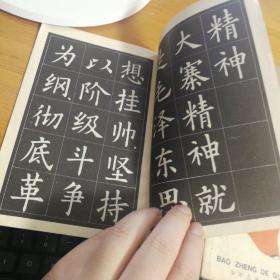 精神
大寨精神就
是毛泽东思
想挂帅,坚持
以阶级斗争
为纲,彻底革
BAO ZHENG DE GU